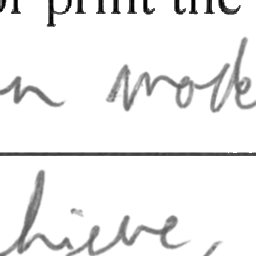 or print the
n mode
hieve,